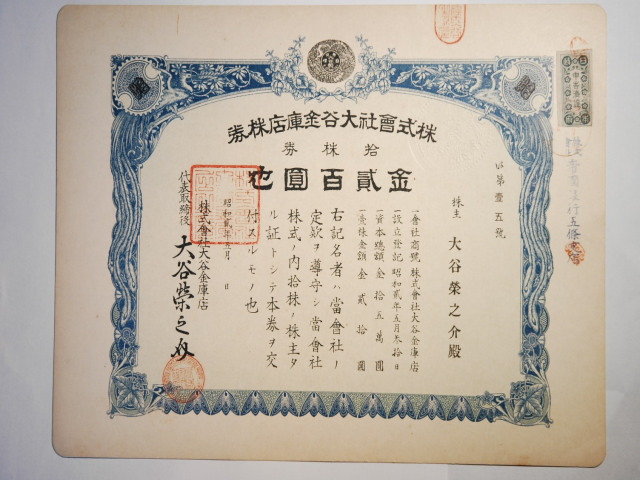 株式會社大谷金庫店株券
拾株券
金貳百圓也
第壹五號
株主 大谷榮之介殿
一會社商號 株式會社大谷金庫店
一設立登記 昭和貳年五月叁拾日
一資本總額 金拾五萬圓
一壹株金額 金貳拾圓
右記名者ハ當會社ノ
定款ヲ遵守シ當會社
株式ノ内拾株ノ株主タ
ル証トシテ本券ヲ交
付スルモノ也
昭和貳年五月 日
株式會社大谷金庫店
代表取締役 大谷榮之介